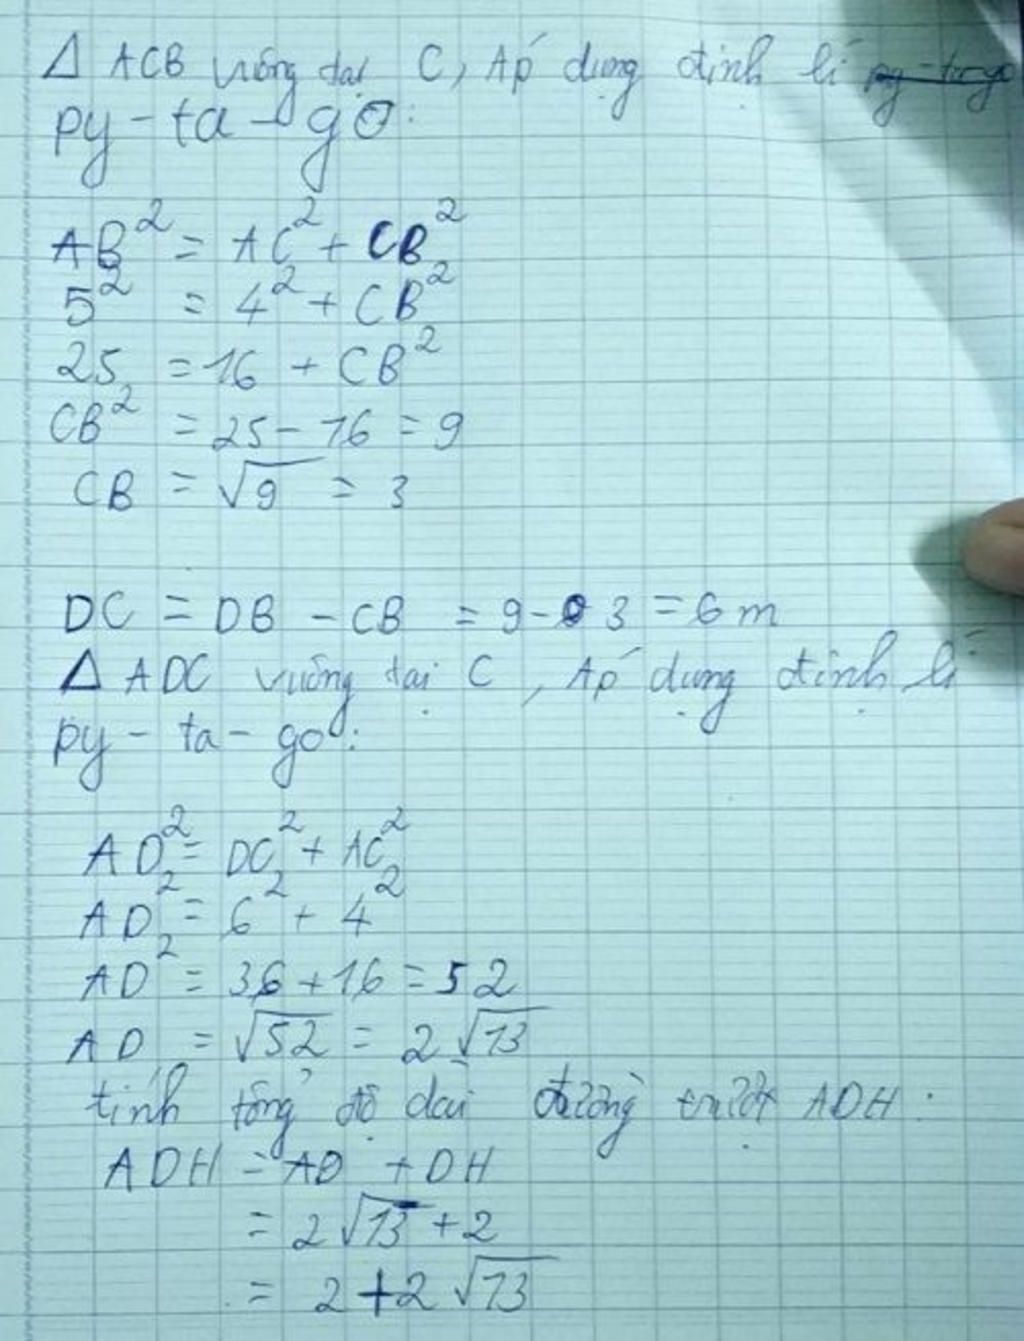 Δ ACB vuông tại C, Áp dụng định lí
py-ta-go:
AB² = AC² + CB²
5² = 4² + CB²
25 = 16 + CB²
CB² = 25 - 16 = 9
CB = √9 = 3
DC = DB - CB = 9 - 3 = 6 m
Δ ADC vuông tại C, Áp dụng định lí
py-ta-go:
AD² = DC² + AC²
AD² = 6² + 4²
AD² = 36 + 16 = 52
AD = √52 = 2√13
tính tổng độ dài đường trượt ADH:
ADH = AD + DH
= 2√13 + 2
= 2 + 2√13